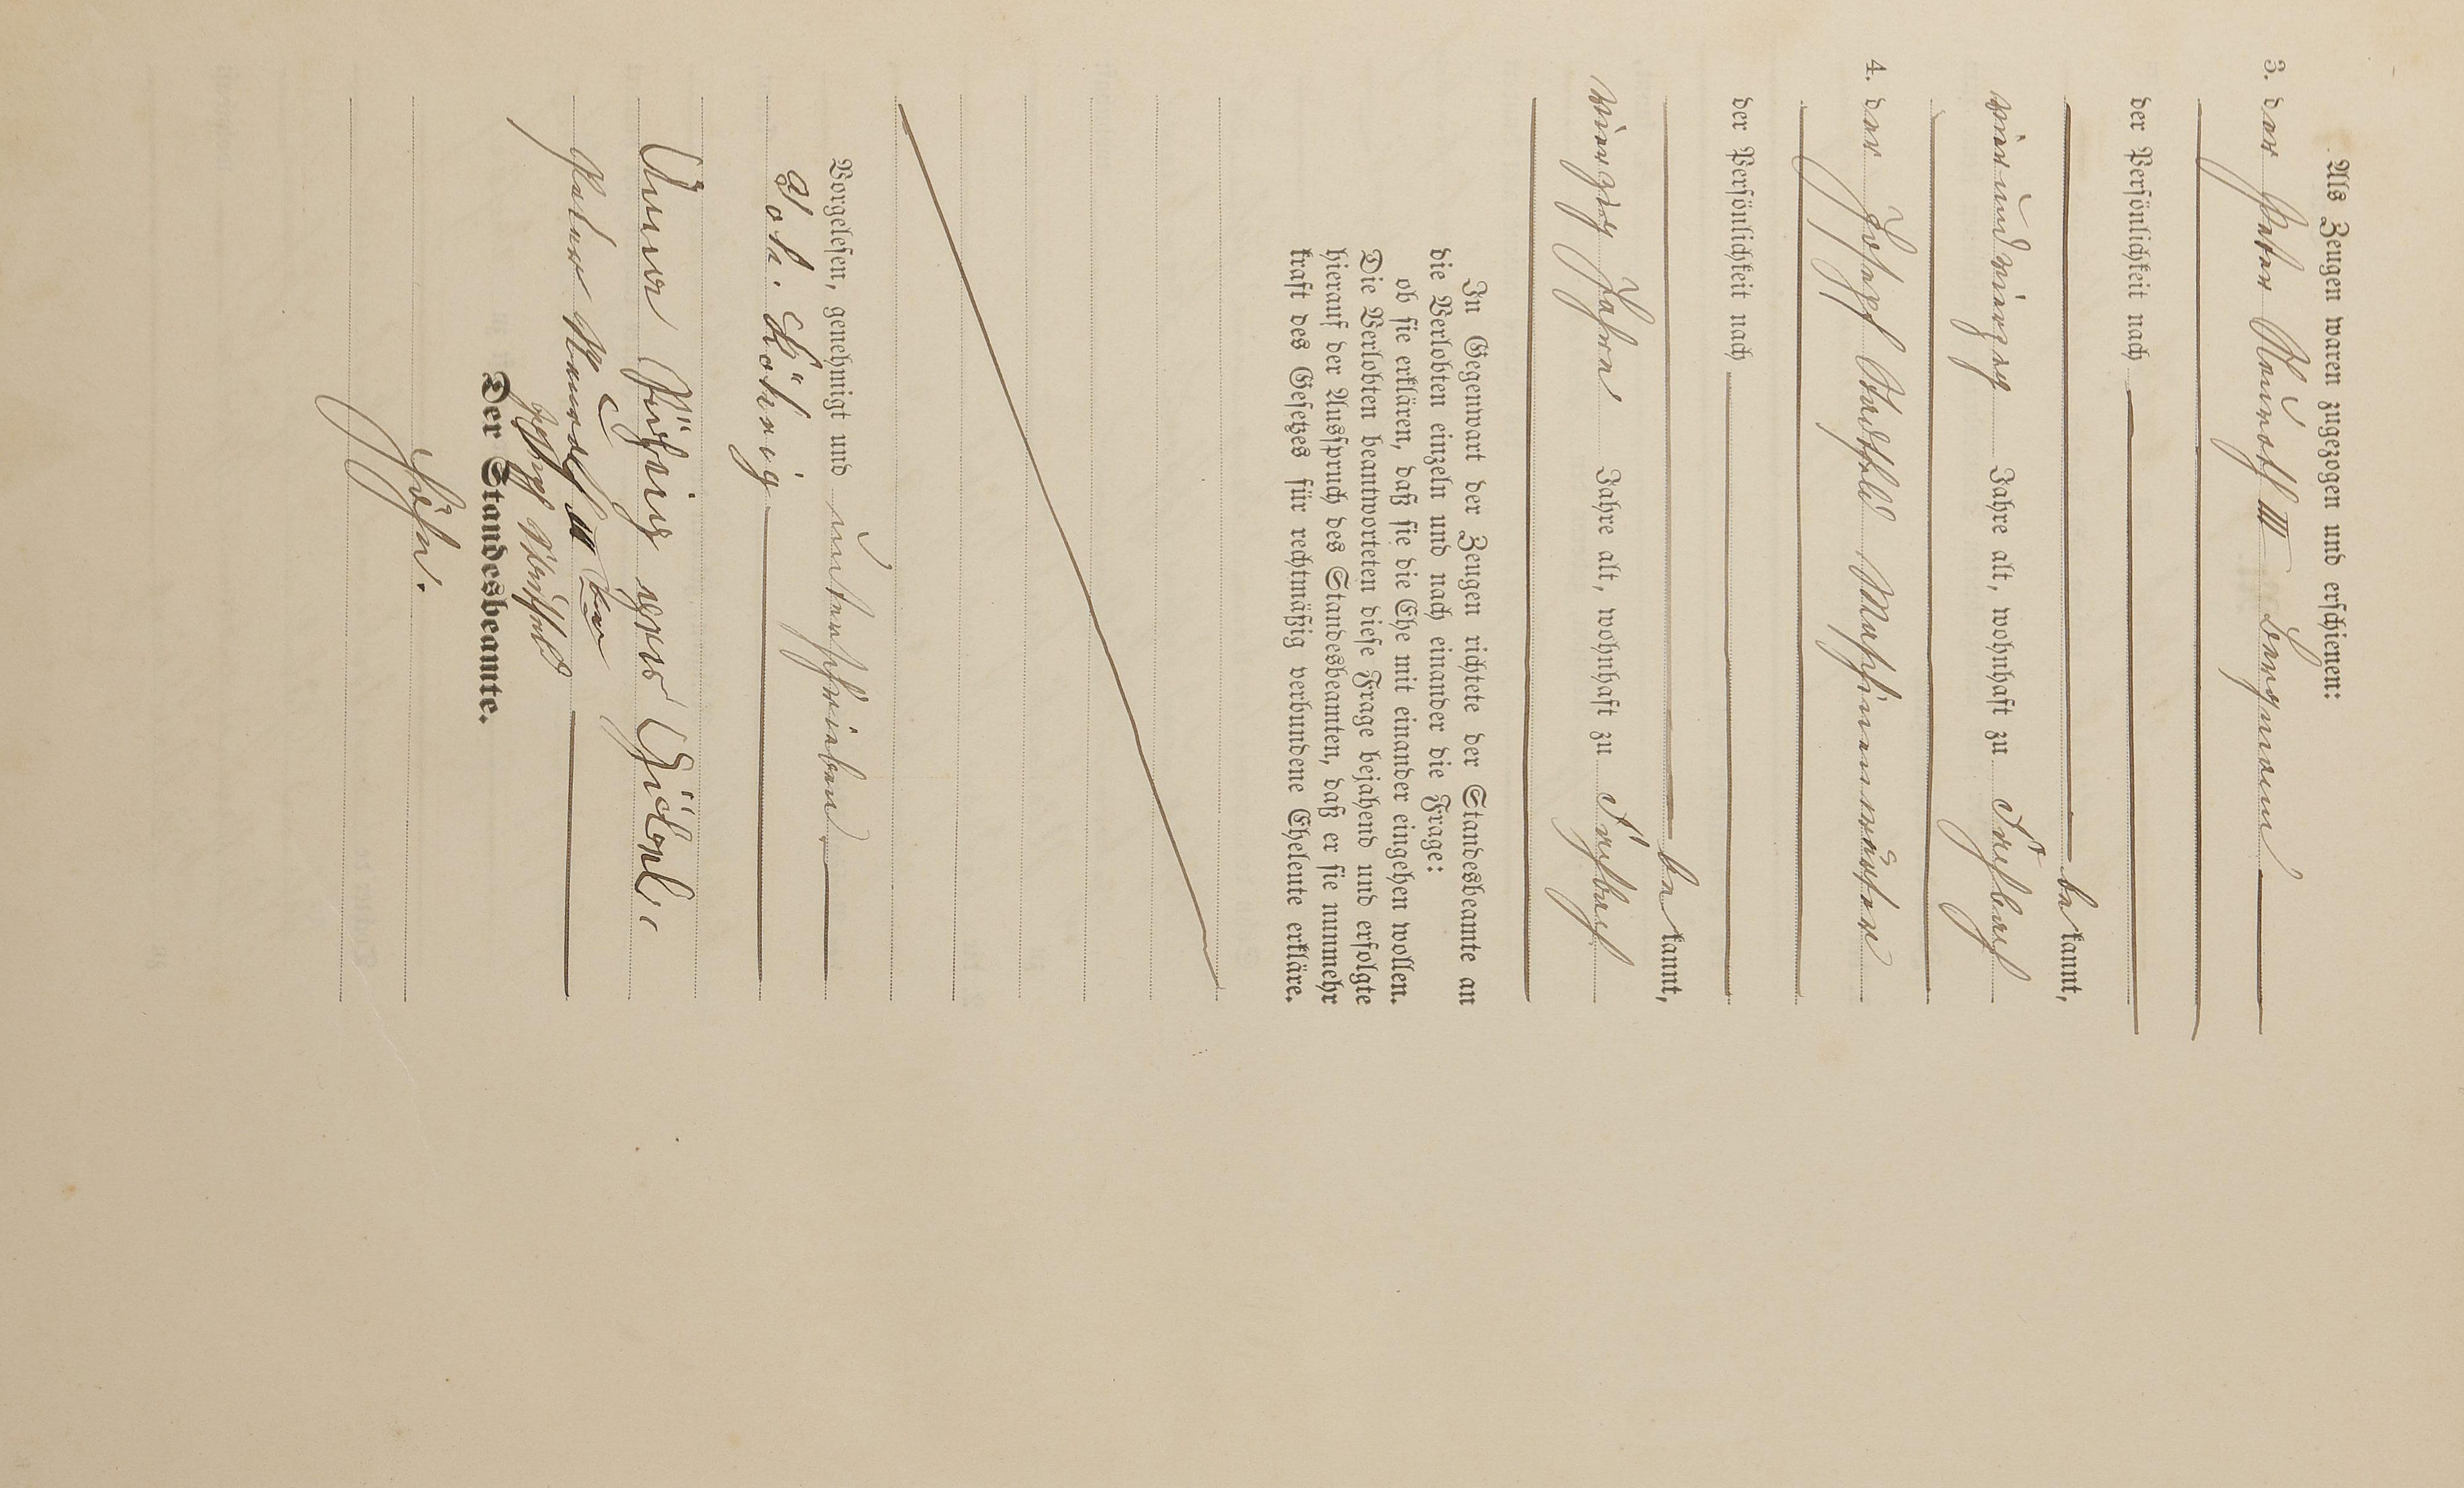 Als Zeugen waren zugezogen und erschienen:
3. der Peter Meurodt III Bergmann
der Persönlichkeit nach
bekannt,
vierundvierzig Jahre alt, wohnhaft zu
4. der Josef Maschinenwärter
der Persönlichkeit nach
bekannt,
vierzig Jahre Jahre alt, wohnhaft zu
In Gegenwart der Zeugen richtete der Standesbeamte an
die Verlobten einzeln und nach einander die Frage:
ob sie erklären, daß sie die Ehe mit einander eingehen wollen.
Die Verlobten beantworteten diese Frage bejahend und erfolgte
hierauf der Ausspruch des Standesbeamten, daß er sie nunmehr
kraft des Gesetzes für rechtmäßig verbundene Eheleute erkläre.
Vorgelesen, genehmigt und unterschrieben
Joh. Röhrig
Anna Röhrig geb.
Peter
Josef
Der Standesbeamte.